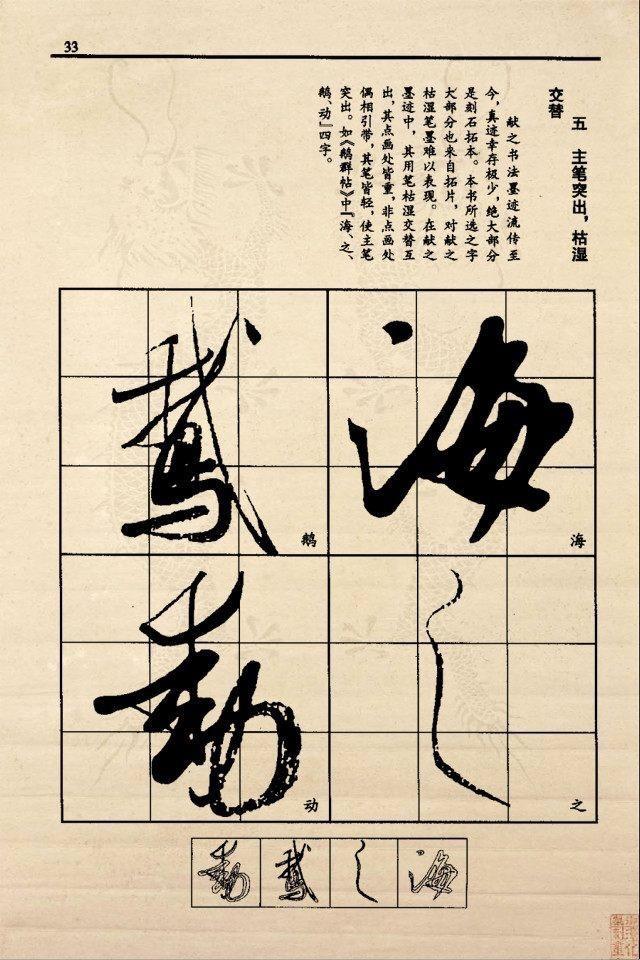 33
五　主笔突出，枯湿
交替
献之书法墨迹流传至
今，真迹幸存极少，绝大部分
是刻石拓本。本书所选之字
大部分也来自拓片，对献之
枯湿笔墨难以表现。在献之
墨迹中，其用笔枯湿交替互
出，其点画处皆重，非点画处
偶相引带，其笔皆轻，使主笔
突出。如《鹅群帖》中『海、之、
鹅、动』四字。
海
海
之
之
鵞
鹅
動
动
動鵞之海